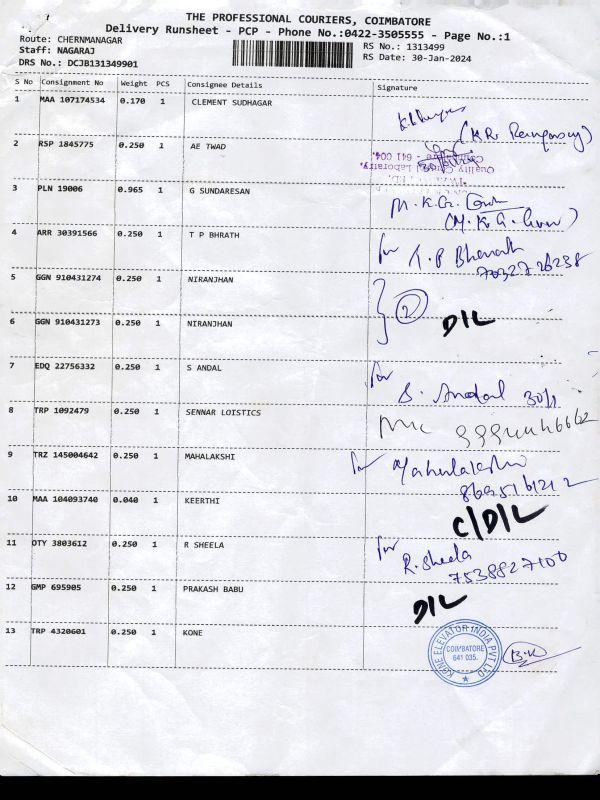 THE PROFESSIONAL COURIERS, COIMBATORE
Delivery Runsheet - PCP - Phone No.:0422-3505555 - Page No.:1
Route: CHERMANAGAR
Staff: NAGARAJ
DRS No.: DCJB131349901
RS No.: 1313499
RS Date: 30-Jan-2024
S No Consignment No Weight PCS Consignee Details Signature
1 MAA 107174534 0.170 1 CLEMENT SUDHAGAR
2 RSP 1845775 0.250 1 AE TWAD
Quality Control Laboratry.
Coimbatore - 641 004.
3 PLN 19006 0.965 1 G SUNDARESAN
M.K.G.
4 ARR 30391566 0.250 1 T P BHRATH
for T.P Bharath
7032726238
5 GGN 910431274 0.250 1 NIRANJHAN
2
6 GGN 910431273 0.250 1 NIRANJHAN
D/L
7 EDQ 22756332 0.250 1 S ANDAL
for S. Andal 30/1
8 TRP 1092479 0.250 1 SENNAR LOISTICS
9 TRZ 145004642 0.250 1 MAHALAKSHI
for Mahalakshi
10 MAA 104093740 0.040 1 KEERTHI
C/D/L
11 OTY 3803612 0.250 1 R SHEELA
for R. Sheela
7538827100
12 GMP 695905 0.250 1 PRAKASH BABU
D/L
13 TRP 4320601 0.250 1 KONE
KONE ELEVATOR INDIA PVT LTD
COIMBATORE
641 035.
B.K